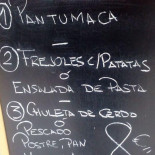 1) PANTUMACA
2) FREJOLES C/PATATAS
Ó
ENSALADA DE PASTA
3) CHULETA DE CERDO
Ó
PESCADO
POSTRE, PAN
8 €